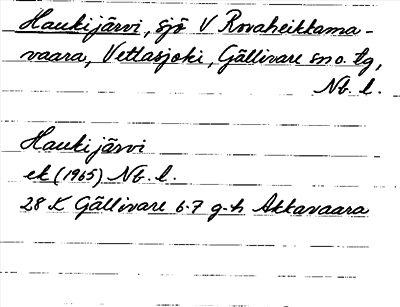 Haukijärvi, sjö V Rovaheikkama-
vaara, Vettasjoki, Gällivare sn o. tg,
Nb. l.
Haukijärvi
ek (1965) Nb. l.
28 K Gällivare 6-7 g-h Akkavaara